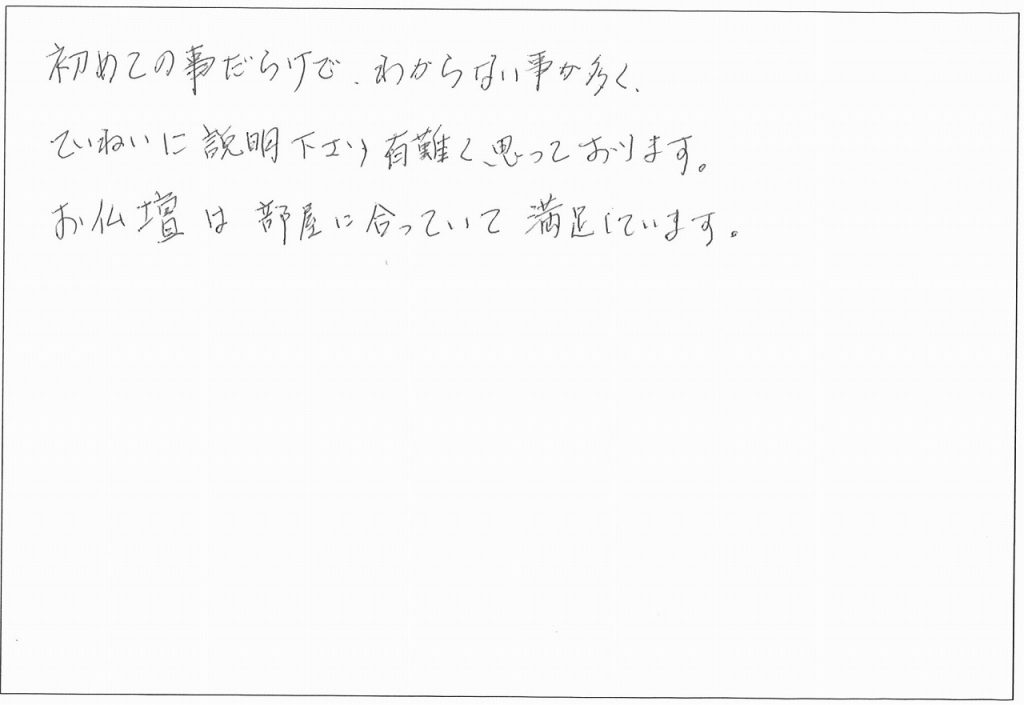 初めての事だらけで、わからない事が多く、
ていねいに説明下さり有難く思っております。
お仏壇は部屋に合っていて満足しています。